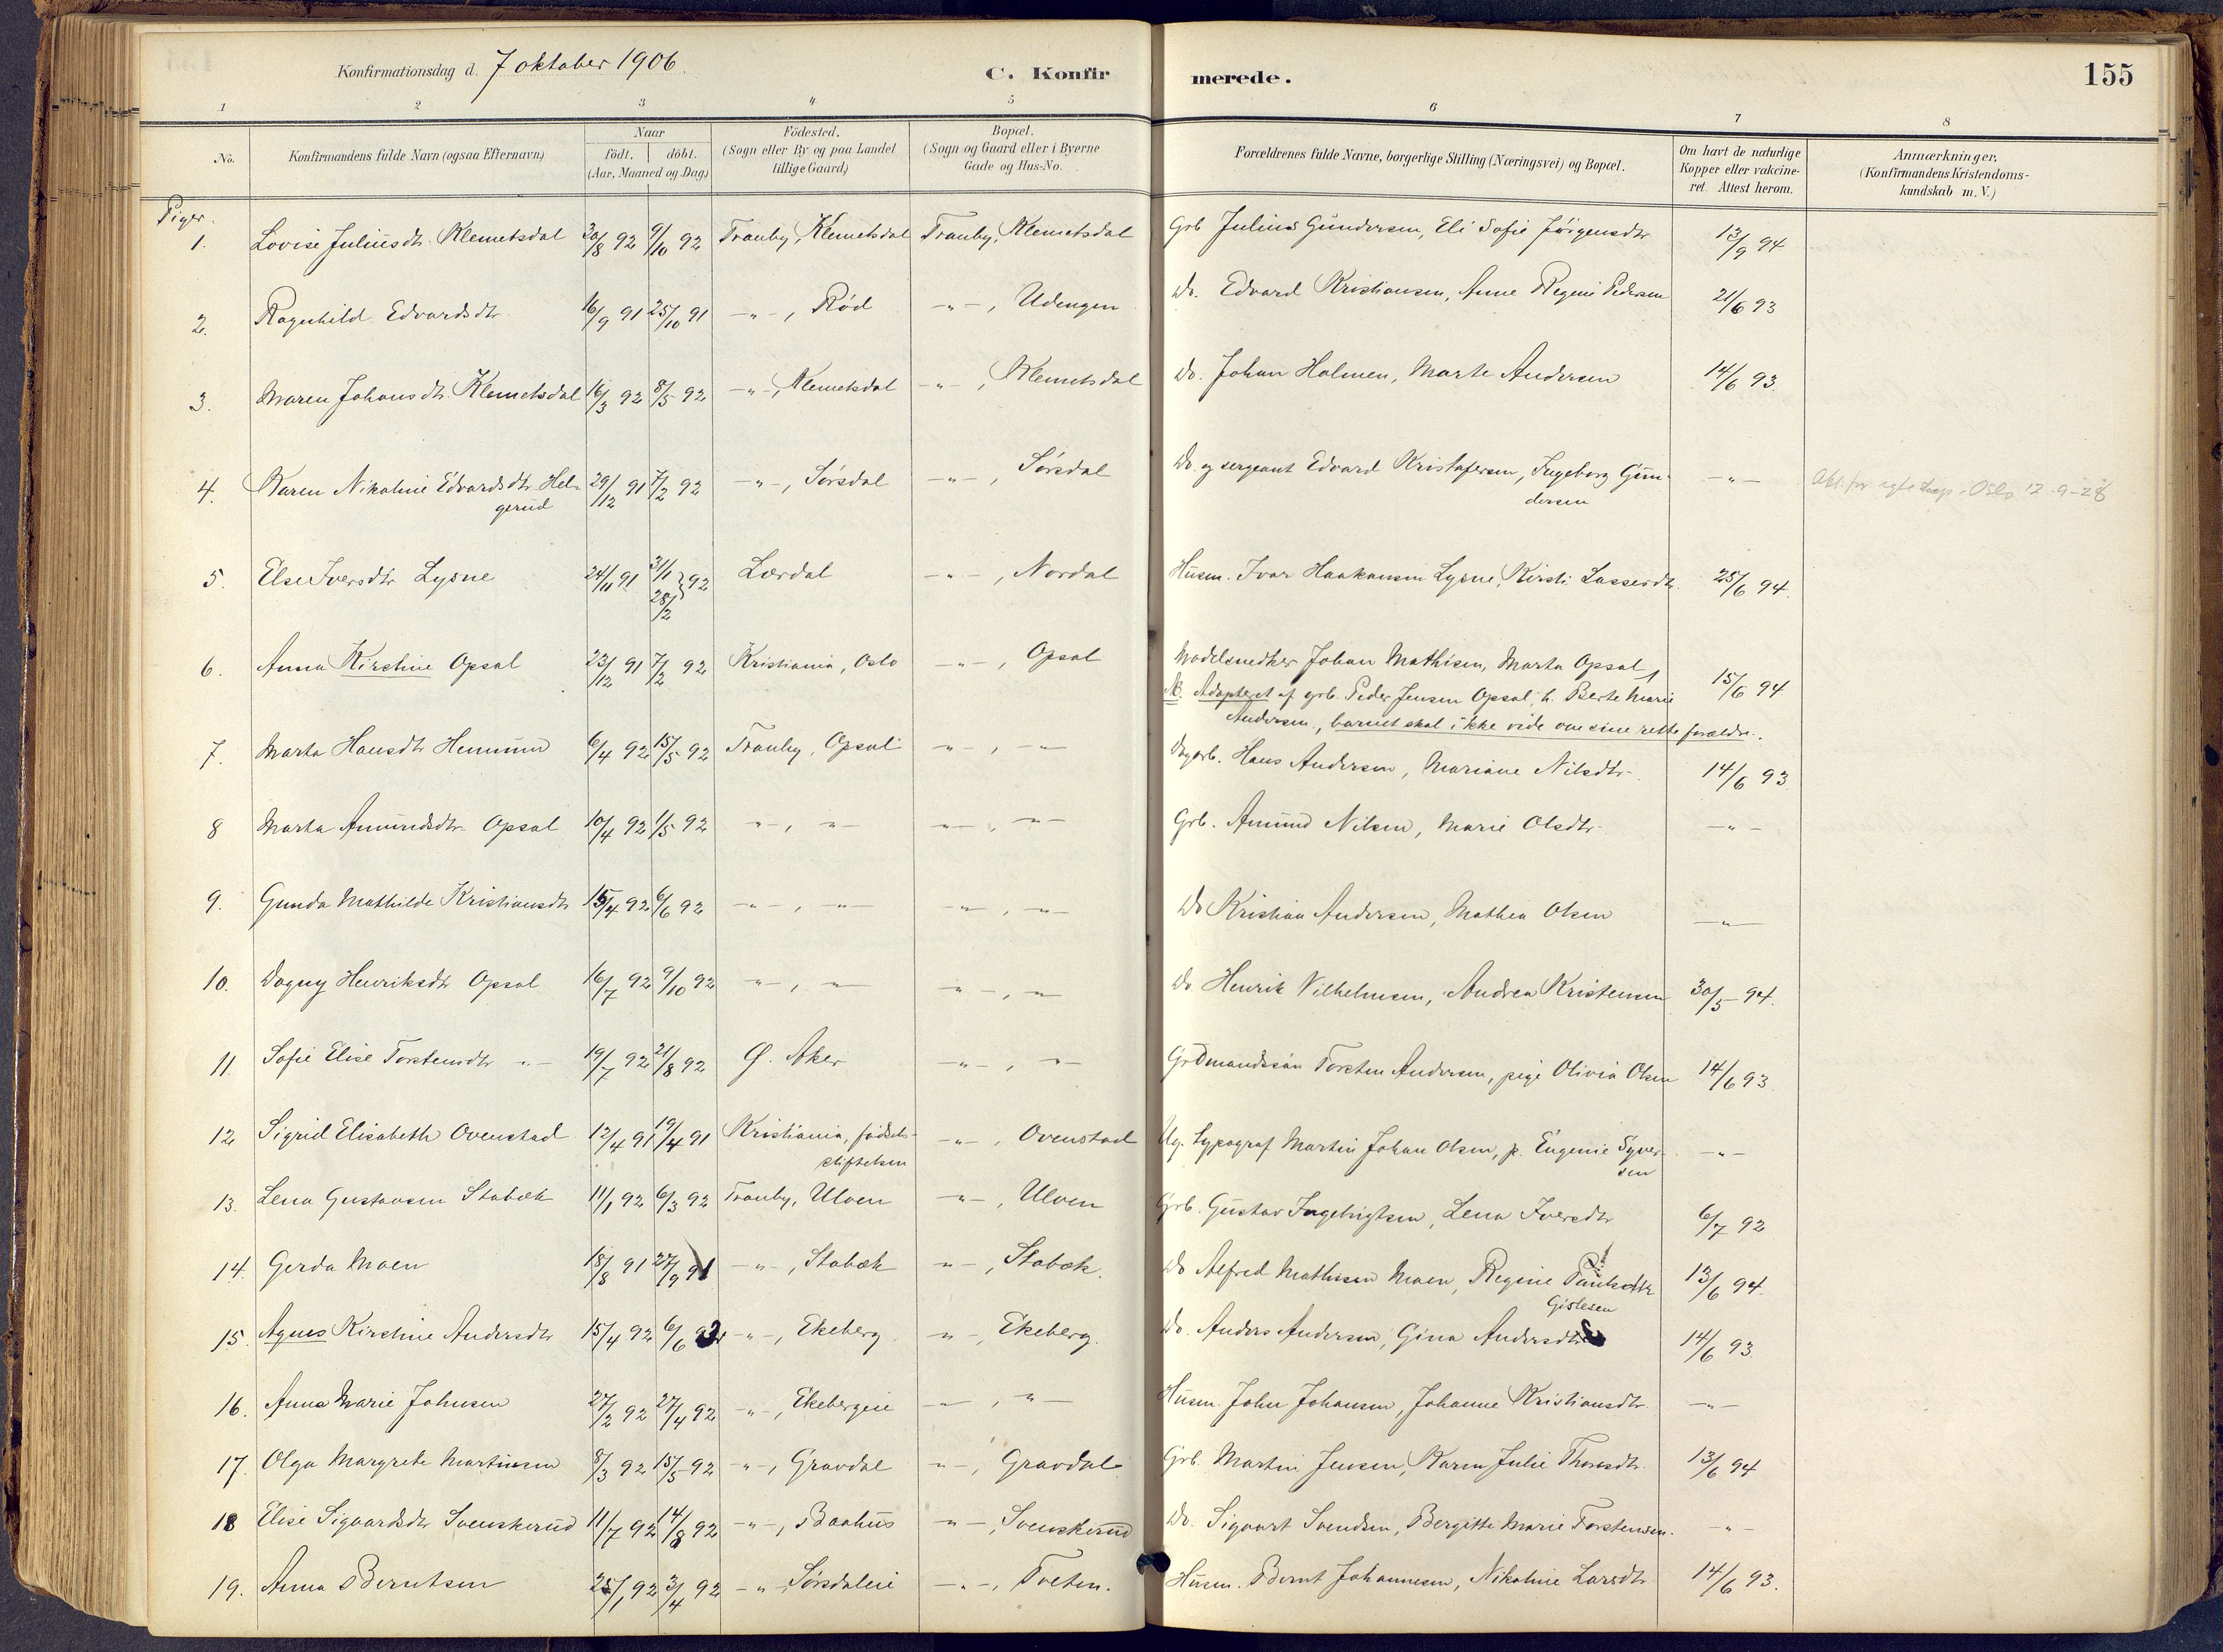 Konfirmationsdag d. 7 oktober 1906.
C. Konfirmerede.
155
1 2 3 4 5 6 7 8
No.
Konfirmandens fulde Navn (ogsaa Efternavn)
Naar
födt. döbt.
(Aar, Maaned og Dag)
Födested.
(Sogn eller By og paa Landet
tillige Gaard)
Bopæl.
(Sogn og Gaard eller i Byerne
Gade og Hus-No.
Forældrenes fulde Navne, borgerlige Stilling (Næringsvei) og Bopæl.
Om havt de naturlige
Kopper eller vakcine-
ret. Attest herom.
Anmærkninger.
(Konfirmandens Kristendoms-
kundskab m. V.)
Piger.
1. Lovise Juliusdtr. Klemetsdal 30/8 92 9/10 92 Tranby, Klemetsdal Tranby, Klemetsdal Grb Julius Gundersen, Eli Sofie Jörgensdtr 13/9 94
2. Ragnhild Edvardsdtr 16/9 91 25/10 91 -"-, Röd -"-, Udengen Do. Edvard Kristiansen, Anne Regine Pedersen 21/6 93
3. Maren Johansdtr. Klemetsdal 16/3 92 8/5 92 -"-, Klemetsdal -"-, Klemetsdal Do. Johan Halmen, Marte Andersen 14/6 93.
4. Karen Nikoline Edvardsdtr. Hel-
gerud 29/12 91 7/2 92 -"-, Sörsdal -"-, Sörsdal Do. og sergeant Edvard Kristofersen, Ingeborg Gun-
dersen -"- Att. for egteskap. Oslo 12-9-28
5. Else Iversdtr Lysne 24/11 91 31/1 28/2 } 92 Lærdal -"-, Nordal Husm. Ivar Haakansen Lysne, Kirsti Lassesdtr 25/6 94.
6. Anna Kirstine Opsal 23/12 91 7/2 92 Kristiania, Oslo -"-, Opsal Modelsnedker Johan Mathisen, Marta Opsal,
NB. Adopteret af grb. Peder Jensen Opsal, h. Berte Marie
Andersen, barnet skal ikke vide om sine rette forældre. 15/6 94
7. Marta Hansdtr Hennum 6/4 92 15/5 92 Tranby, Opsal -"-, -"- Dagarb. Hans Andersen, Mariane Nilsdtr. 14/6 93.
8 Marta Amundsdtr. Opsal 10/4 92 1/5 92 -"-, -"- -"-, -"- Grb. Amund Nilsen, Marie Olsdtr. -"-
9. Gunda Mathilde Kristiansdtr 15/4 92 6/6 92 -"-, -"- -"-, -"- Do Kristian Andersen, Mathea Olsen -"-
10. Dagny Henriksdtr Opsal 16/7 92 9/10 92 -"-, -"- -"-, -"- Do. Henrik Vilhelmsen, Andrea Kristensen 30/5 94.
11. Sofie Elise Torstensdtr -"- 19/7 92 21/8 92 Ø. Aker -"-, -"- Grdmandssön Torsten Andersen, pige Olivia Olsen 14/6 93.
12. Sigrid Elisabeth Ovenstad 12/4 91 19/4 91 Kristiania, födsels-
stiftelsen -"-, Ovenstad Ug. Typograf Martin Johan Olsen, p. Eugenie Syver-
sen -"-
13. Lena Gustavsen Stabæk 11/1 92 6/3 92 Tranby, Ulven -"-, Ulven Grb. Gustav Ingebrigtsen, Lena Iversdtr 6/7 92
14. Gerda Moen 18/8 91 27/9 91 -"-, Stabæk -"-, Stabæk. Do Alfred Mathisen Moen, Regine Paulsdtr
Gislesen 13/6 94.
15. Agnes Kirstine Andersdtr 15/4 92 6/6 92 -"-, Ekeberg -"-, Ekeberg. Do. Anders Andersen, Gina Andersdtr 14/6 93.
16. Anna Marie Johnsen 27/2 92 27/4 92 -"-, Ekebergeie -"-, -"- Husm. John Johansen, Johanne Kristiansdtr. -"-
17. Olga Margrete Martinsen 8/3 92 15/5 92 -"-, Gravdal -"-, Gravdal Grb. Martin Jensen, Karen Julie Thoresdtr. 13/6 94
18 Elise Sigvardsdtr Svenskerud 11/7 92 14/8 92 -"-, Baahus -"-, Svenskerud Do. Sigvart Svendsen, Bergitte Marie Torstensen. -"-
19. Anna Berntsen 25/1 92 3/4 92 -"- Sörsdaleie -"-, Tveten. Husm. Bernt Johannesen, Nikoline Larsdtr 14/6 93.